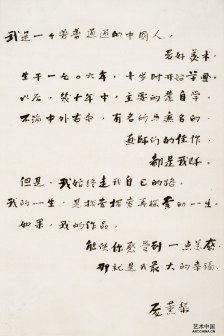 我是一个普普通通的中国人，
爱好美术。
生于一九〇六年，十岁时开始学画。
以后，几十年中，主要的靠自学。
不论中外古今，有名的无名的
画师们的佳作，
都是我师。
但是，我始终走我自己的路。
我的一生，是探索探索再探索的一生。
如果，我的作品，
能使你感受到一点美感，
那就是我最大的幸福。
庞薰琹
艺术中国